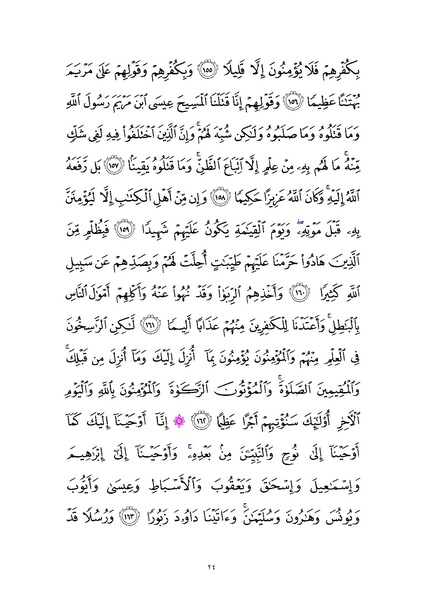 بِكُفْرِهِمْ فَلَا يُؤْمِنُونَ إِلَّا قَلِيلًا ۝١٥٥ وَبِكُفْرِهِمْ وَقَوْلِهِمْ عَلَىٰ مَرْيَمَ
بُهْتَٰنًا عَظِيمًا ۝١٥٦ وَقَوْلِهِمْ إِنَّا قَتَلْنَا ٱلْمَسِيحَ عِيسَى ٱبْنَ مَرْيَمَ رَسُولَ ٱللَّهِ
وَمَا قَتَلُوهُ وَمَا صَلَبُوهُ وَلَٰكِن شُبِّهَ لَهُمْ ۚ وَإِنَّ ٱلَّذِينَ ٱخْتَلَفُوا۟ فِيهِ لَفِى شَكٍّ
مِّنْهُ ۚ مَا لَهُم بِهِۦ مِنْ عِلْمٍ إِلَّا ٱتِّبَاعَ ٱلظَّنِّ ۚ وَمَا قَتَلُوهُ يَقِينًۢا ۝١٥٧ بَل رَّفَعَهُ
ٱللَّهُ إِلَيْهِ ۚ وَكَانَ ٱللَّهُ عَزِيزًا حَكِيمًا ۝١٥٨ وَإِن مِّنْ أَهْلِ ٱلْكِتَٰبِ إِلَّا لَيُؤْمِنَنَّ
بِهِۦ قَبْلَ مَوْتِهِۦ ۖ وَيَوْمَ ٱلْقِيَٰمَةِ يَكُونُ عَلَيْهِمْ شَهِيدًا ۝١٥٩ فَبِظُلْمٍ مِّنَ
ٱلَّذِينَ هَادُوا۟ حَرَّمْنَا عَلَيْهِمْ طَيِّبَٰتٍ أُحِلَّتْ لَهُمْ وَبِصَدِّهِمْ عَن سَبِيلِ
ٱللَّهِ كَثِيرًا ۝١٦٠ وَأَخْذِهِمُ ٱلرِّبَوٰا۟ وَقَدْ نُهُوا۟ عَنْهُ وَأَكْلِهِمْ أَمْوَٰلَ ٱلنَّاسِ
بِٱلْبَٰطِلِ ۚ وَأَعْتَدْنَا لِلْكَٰفِرِينَ مِنْهُمْ عَذَابًا أَلِيمًا ۝١٦١ لَّٰكِنِ ٱلرَّٰسِخُونَ
فِى ٱلْعِلْمِ مِنْهُمْ وَٱلْمُؤْمِنُونَ يُؤْمِنُونَ بِمَآ أُنزِلَ إِلَيْكَ وَمَآ أُنزِلَ مِن قَبْلِكَ ۚ
وَٱلْمُقِيمِينَ ٱلصَّلَوٰةَ ۚ وَٱلْمُؤْتُونَ ٱلزَّكَوٰةَ وَٱلْمُؤْمِنُونَ بِٱللَّهِ وَٱلْيَوْمِ
ٱلْءَاخِرِ أُو۟لَٰٓئِكَ سَنُؤْتِيهِمْ أَجْرًا عَظِيمًا ۝١٦٢ ۞ إِنَّآ أَوْحَيْنَآ إِلَيْكَ كَمَآ
أَوْحَيْنَآ إِلَىٰ نُوحٍ وَٱلنَّبِيِّۦنَ مِنۢ بَعْدِهِۦ ۚ وَأَوْحَيْنَآ إِلَىٰٓ إِبْرَٰهِيمَ
وَإِسْمَٰعِيلَ وَإِسْحَٰقَ وَيَعْقُوبَ وَٱلْأَسْبَاطِ وَعِيسَىٰ وَأَيُّوبَ
وَيُونُسَ وَهَٰرُونَ وَسُلَيْمَٰنَ ۚ وَءَاتَيْنَا دَاوُۥدَ زَبُورًا ۝١٦٣ وَرُسُلًا قَدْ
٢٤